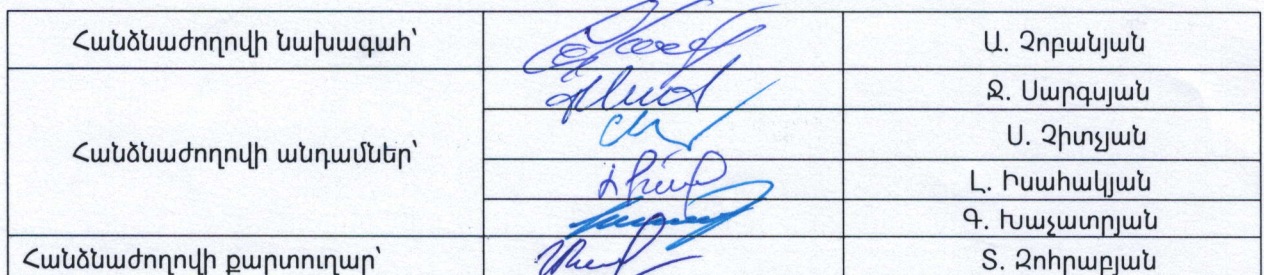 Հանձնաժողովի նախագահ՝ Ա. Չոբանյան
Ջ. Սարգսյան
Հանձնաժողովի անդամներ՝ Ս. Չիտչյան
Լ. Իսահակյան
Գ. Խաչատրյան
Հանձնաժողովի քարտուղար՝ Տ. Զոհրաբյան